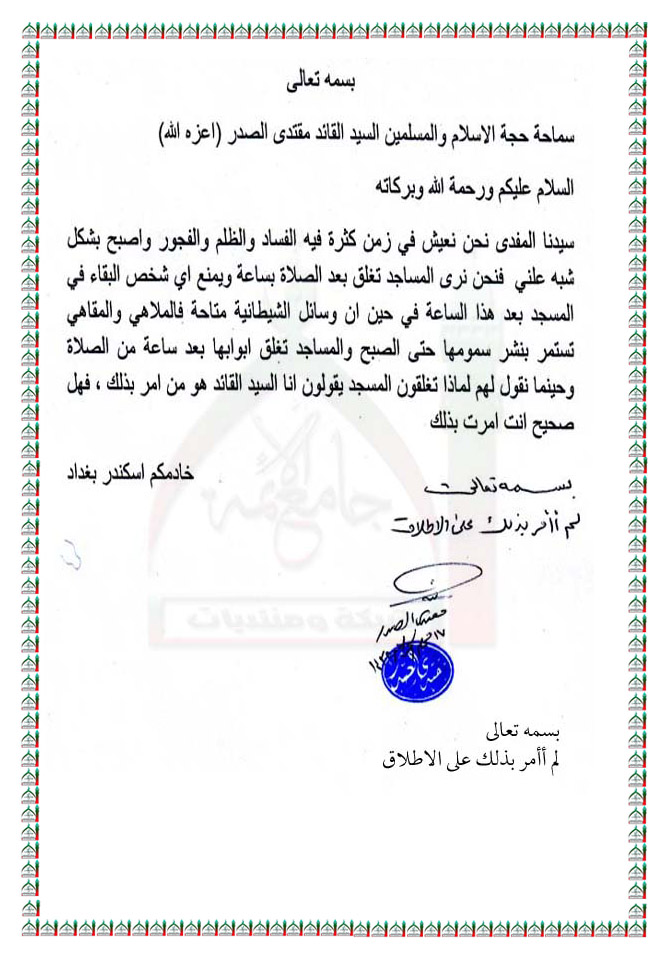 بسمه تعالى
سماحة حجة الاسلام والمسلمين السيد القائد مقتدى الصدر (اعزه الله)
السلام عليكم ورحمة الله وبركاته
سيدنا المفدى نحن نعيش في زمن كثرة فيه الفساد والظلم والفجور واصبح بشكل
شبه علني فنحن نرى المساجد تغلق بعد الصلاة بساعة ويمنع اي شخص البقاء في
المسجد بعد هذا الساعة في حين ان وسائل الشيطانية متاحة فالملاهي والمقاهي
تستمر بنشر سمومها حتى الصبح والمساجد تغلق ابوابها بعد ساعة من الصلاة
وحينما نقول لهم لماذا تغلقون المسجد يقولون انا السيد القائد هو من امر بذلك ، فهل
صحيح انت امرت بذلك
خادمكم اسكندر بغداد
بسمه تعالى
لم أأمر بذلك على الاطلاق
مقتدى الصدر
مقتدى الصدر
بسمه تعالى
لم أأمر بذلك على الاطلاق
جامع الأئمة
شبكة ومنتديات